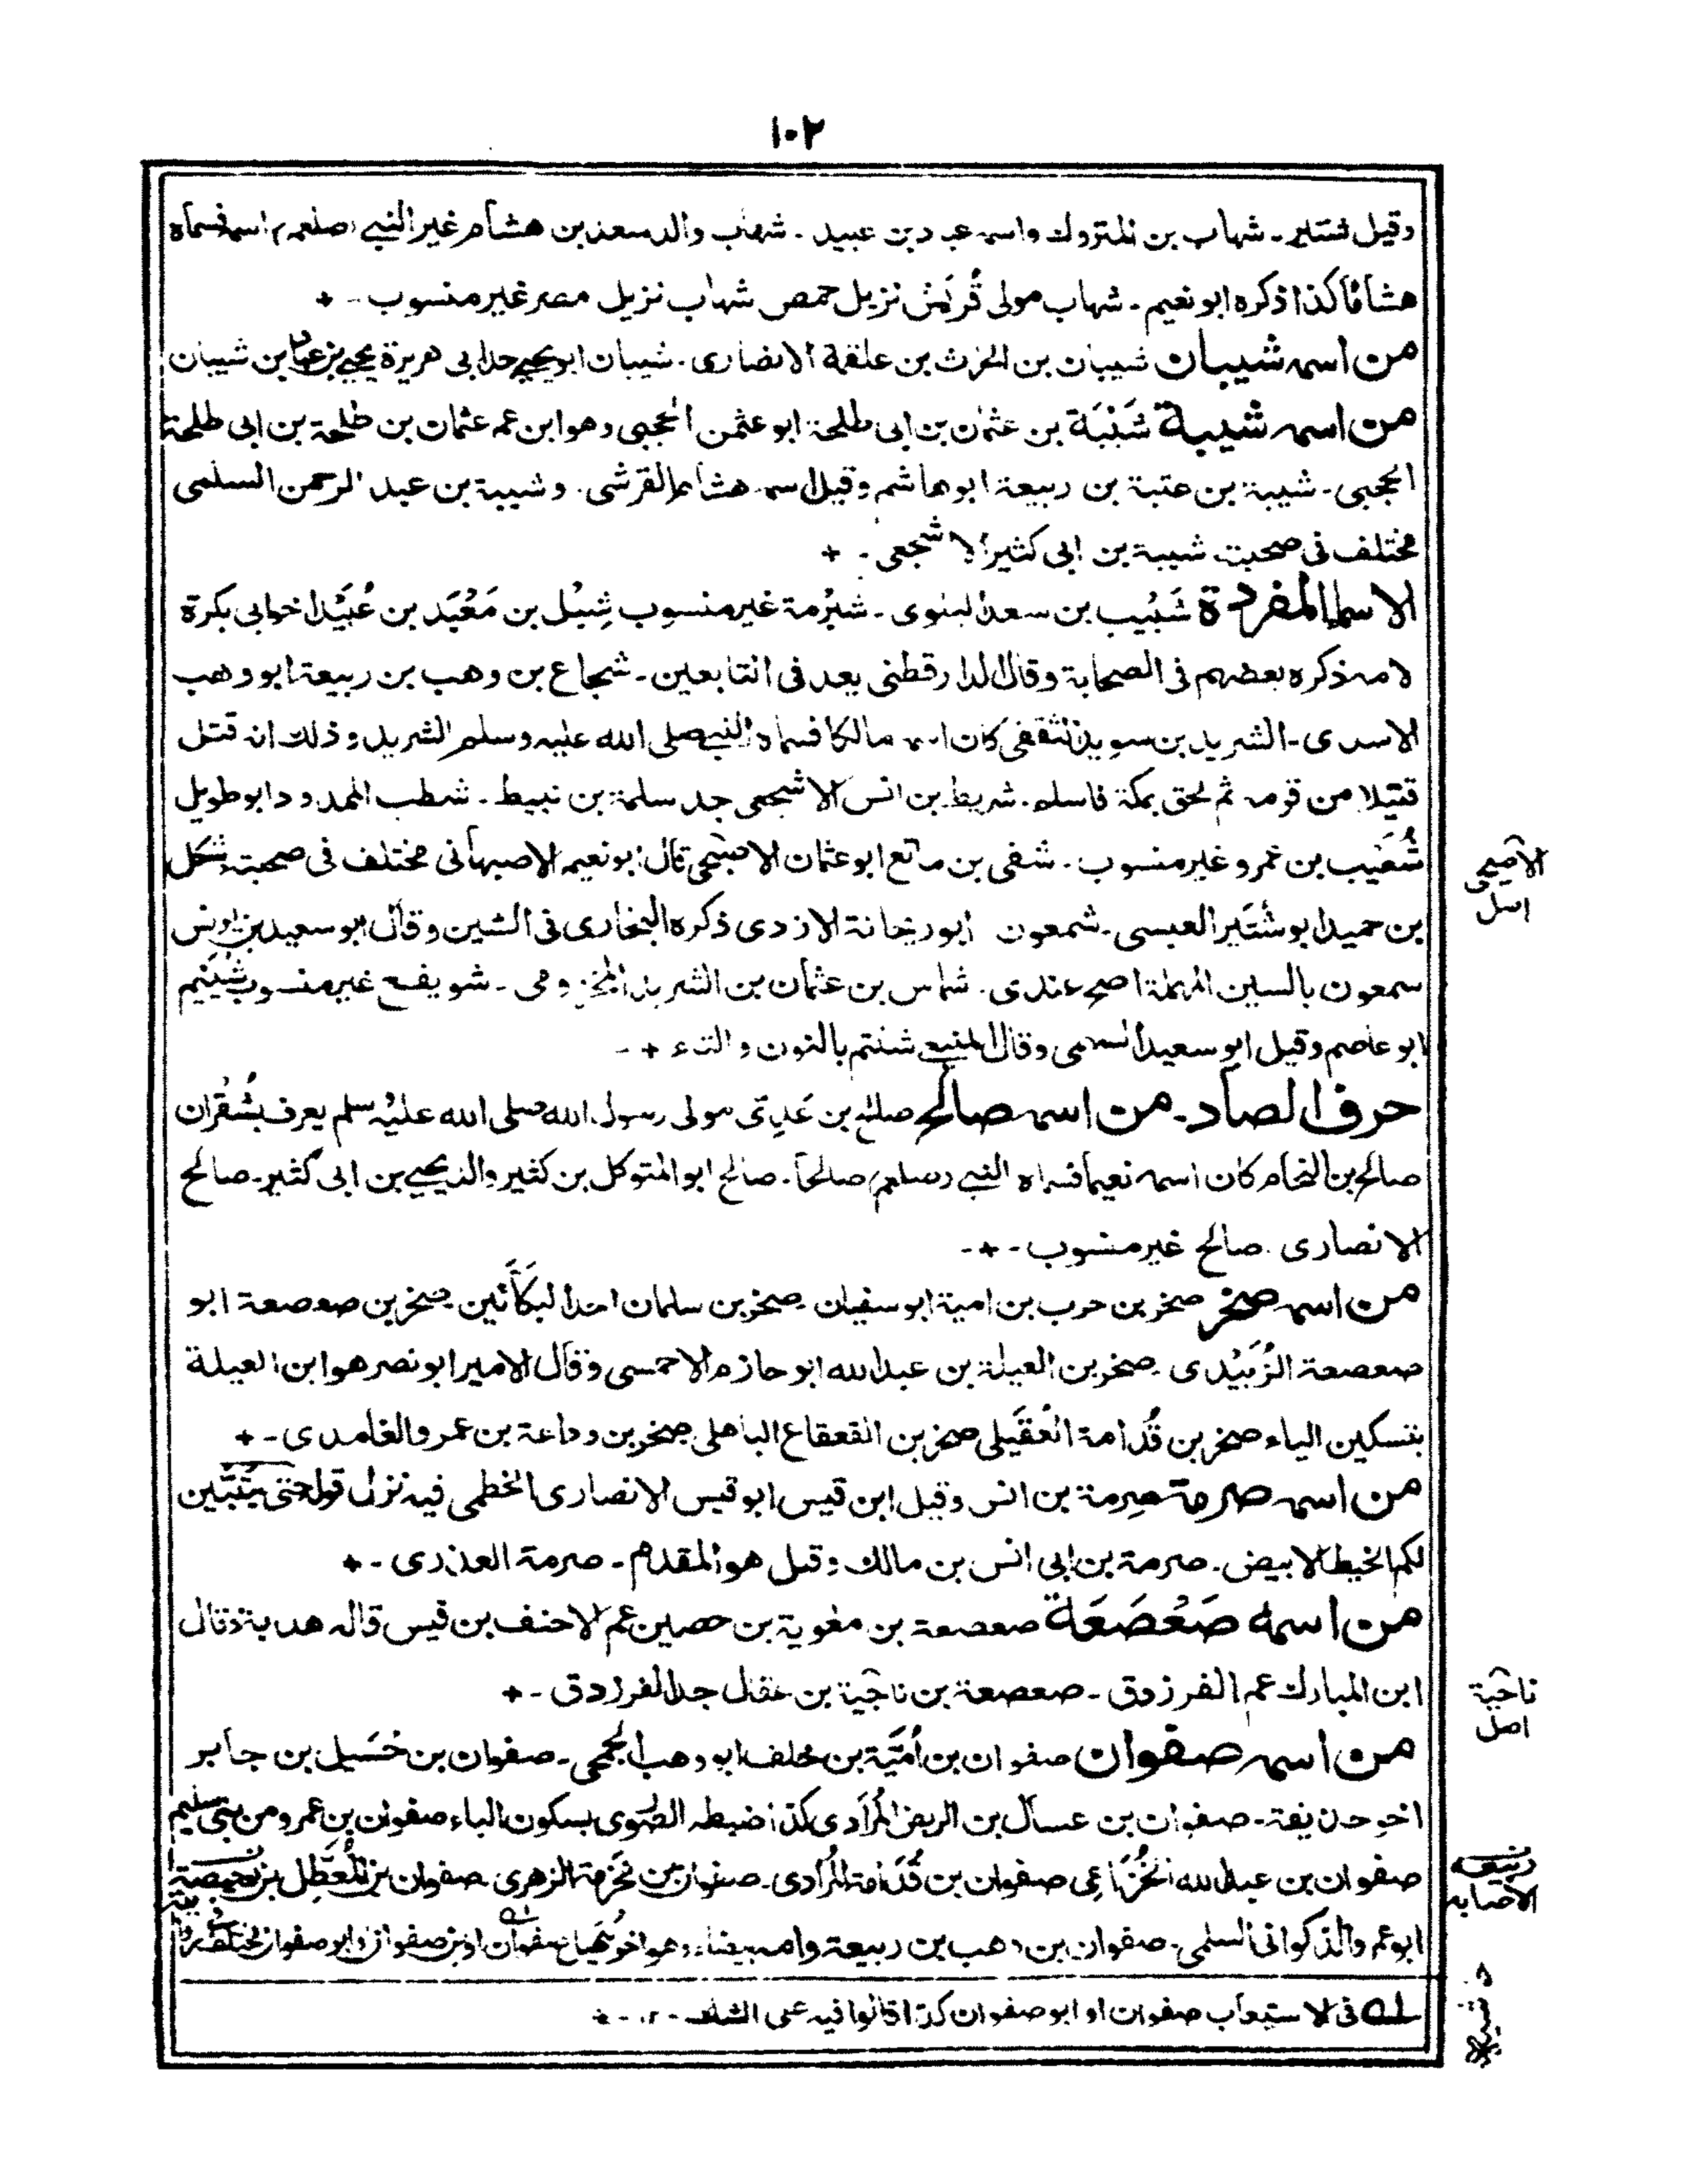 ١٠٢
وقيل شتير - شهاب بن المتروك واسمه عباد بن عبيد - شهاب والد سعد بن هشام غير النبي (صلعم) اسمه فسماه
هشامًا كذا ذكره ابو نعيم - شهاب مولى قُرَيش نزيل حمص شهاب نزيل مصر غير منسوب -
من اسمه شيبان شيبان بن الحرث بن علقمة الانصارى - شيبان ابو يحيى جد ابى هريرة يحيى بن عباد بن شيبان
من اسمه شيبة شَيْبَة بن عثمٰن بن ابى طلحة ابو عثمن الحجبى وهو ابن عم عثمان بن طلحة بن ابى طلحة
الحجبى - شيبة بن عتبة بن ربيعة ابو هاشم وقيل اسمه هشام القرشى - وشيبة بن عبد الرحمن السلمى
مختلف فى صحبته شيبة بن ابى كثير الاشجعى -
الاسماء المفردة شَبِيْب بن سعد البلوى - شبرُمة غير منسوب شِبْل بن مَعْبَد بن عُبَيْد اخو ابى بكرة
لامه ذكره بعضهم فى الصحابة وقال الدارقطنى يعد فى التابعين - شجاع بن وهب بن ربيعة ابو وهب
الاسدى - الشريد بن سويد الثقفى كان اسمه مالكا فسماه النبى صلى الله عليه وسلم الشريد وذلك انه قتل
قتيلا من قومه ثم لحق بمكة فاسلم - شريط بن انس الاشجعى جد سلمة بن نبيط - شطب الممدود ابو طويل
شُعَيب بن عمرو غير منسوب - شفى بن ماتع ابو عثمان الاصبحى قال ابو نعيم الاصبهانى مختلف فى صحبته شكل
بن حميد ابو شُتَير العبسى - شمعون ابو ريحانة الازدى ذكره البخارى فى الشين وقال ابو سعيد بن يونس
سمعون بالسين المهملة اصح عندى - شماس بن عثمان بن الشريد المخزومى - شويفع غير منسوب شُيَيْم
ابو عاصم وقيل ابو سعيد السهمى وقال المنيعى شنتم بالنون والتاء -
حرف الصاد - من اسمه صالح صالح بن عَدِىّ مولى رسول الله صلى الله عليه وسلم يعرف بشُقْران
صالح بن النحام كان اسمه نعيما فسماه النبى (صلعم) صالحًا - صالح ابو المتوكل بن كثير والد يحيى بن ابى كثير - صالح
الانصارى - صالح غير منسوب -
من اسمه صخر صخر بن حرب بن امية ابو سفيان - صخر بن سلمان احد البكّائين - صخر بن صعصعة ابو
صعصعة الزُبَيْدى - صخر بن العيلة بن عبد الله ابو حازم الاحمسى وقال الامير ابو نصر هو ابن العيلة
بتسكين الياء صخر بن قُدامة العُقَيلى صخر بن القعقاع الباهلى صخر بن وداعة بن عمرو الغامدى -
من اسمه صرمة صِرمة بن انس وقيل ابن قيس ابو قيس الانصارى الخطمى فيه نزل قوله حتى يَتَبَيَّن
لكم الخيط الابيض - صرمة بن ابى انس بن مالك وقيل هو المقدم - صرمة العذرى -
من اسمه صَعْصَعَة صعصعة بن معٰوية بن حصين عم الاحنف بن قيس قاله هدبة وقال
ابن المبارك عم الفرزدق - صعصعة بن ناجية بن عقال جد الفرزدق -
من اسمه صفوان صفوان بن أُمَيَّة بن خلف ابو وهب الجمحى - صفوان بن حُسَيل بن جابر
اخو حذيفة - صفوان بن عسال بن الربض المُرَادى كذا ضبطه الصورى بسكون الباء صفوان بن عمرو من بنى سليم
صفوان بن عبد الله الخُزَاعى صفوان بن قُدَامة المُرادى - صفوان بن مَخْرَمة الزهرى - صفوان بن المُعَطَّل بن
ابو عمرو الذكوانى السلمى - صفوان بن وهب بن ربيعة وامه بيضاء وهو اخو سُهَيل صفوان او بن صفوان او ابو صفوان
لـه فى الاستيعاب صفوان او ابو صفوان كذا قالوا فيه على الشك - ١٢ -
الاصبحى
اصل
ناجية
اصل
الاصابه